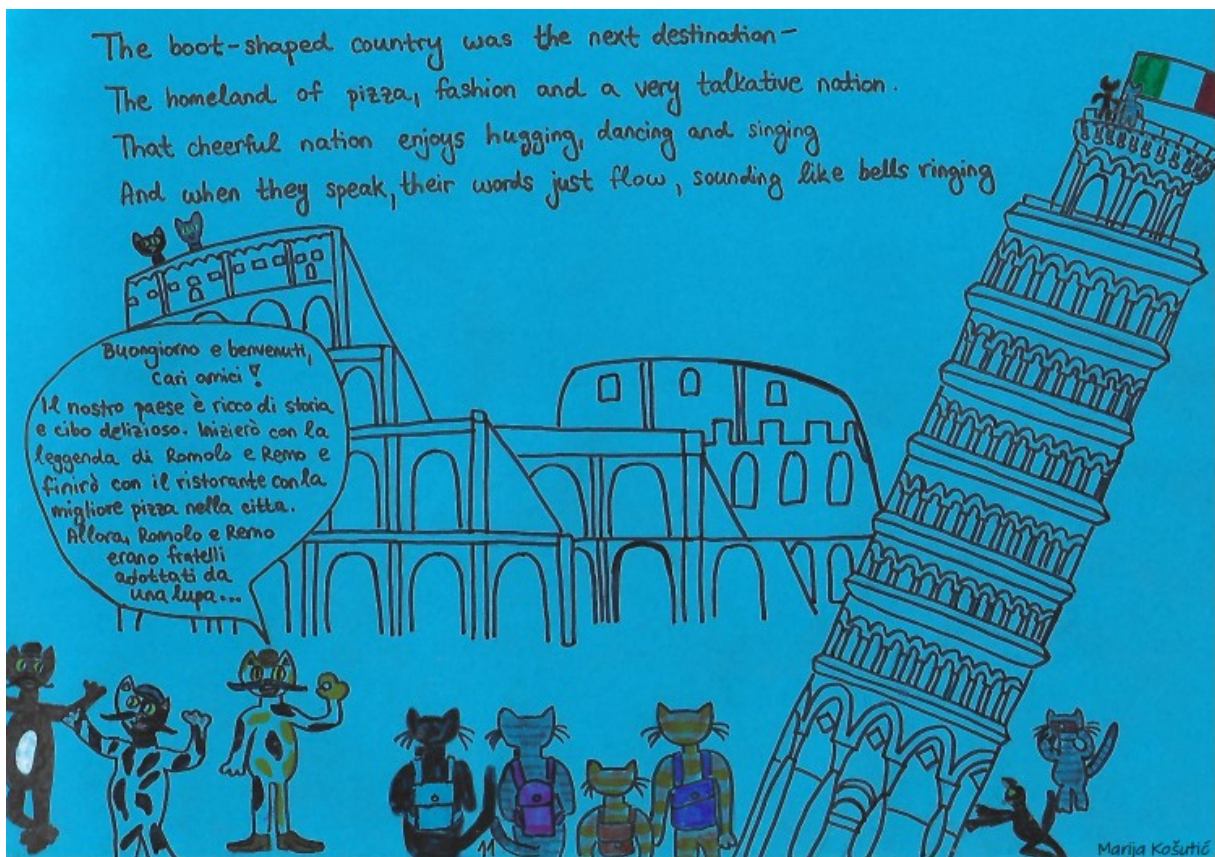 The boot-shaped country was the next destination-
The homeland of pizza, fashion and a very talkative nation.
That cheerful nation enjoys hugging, dancing and singing
And when they speak, their words just flow, sounding like bells ringing
Buongiorno e benvenuti,
cari amici!
Il nostro paese è ricco di storia
e cibo delizioso. Inizierò con la
leggenda di Romolo e Remo e
finirò con il ristorante con la
migliore pizza nella citta.
Allora, Romolo e Remo
erano fratelli
adottati da
una lupa...
11
Marija Košutić